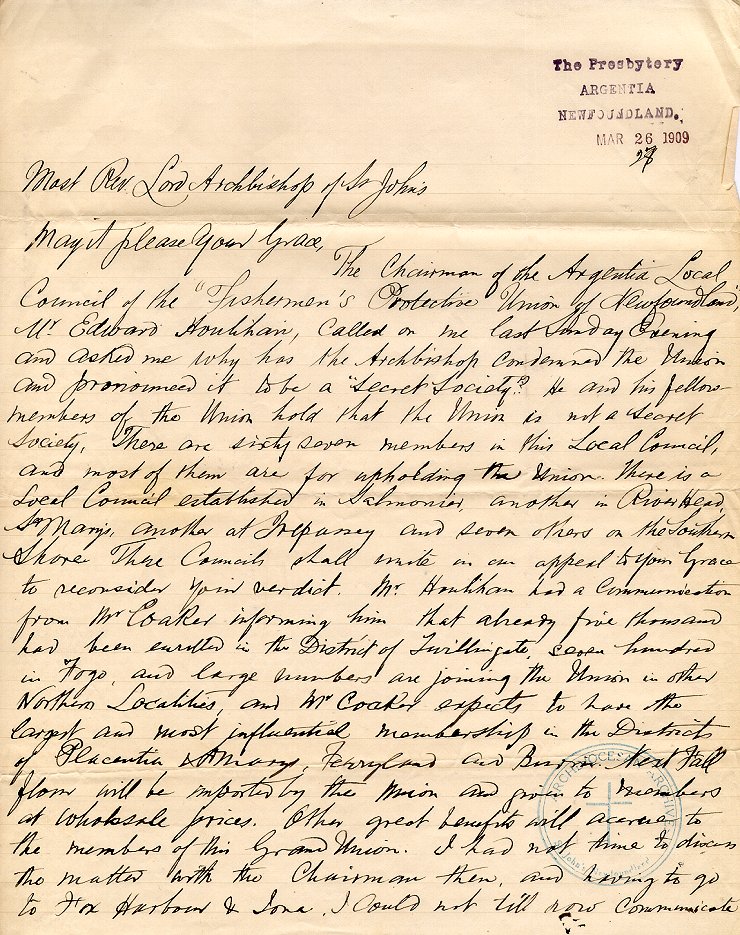 The Presbytery
ARGENTIA
NEWFOUNDLAND.
MAR 26 1909
28
Most Rev. Lord Archbishop of St John's
May it please Your Grace,
The Chairman of the Argentia Local
Council of the "Fishermen's Protective Union of Newfoundland",
Mr Edward Houlihan, called on me last Sunday Evening
and asked me why has the Archbishop condemned the Union
and pronounced it to be a "Secret Society"? He and his fellow
members of the Union hold that the Union is not a Secret
Society. There are sixty seven members in this Local Council,
and most of them are for upholding the Union. There is a
Local Council established in Salmonier, another in River Head,
St Mary's, another at Trepassey and seven others on the Southern
Shore These Councils shall unite in an appeal to Your Grace
to reconsider Your verdict. Mr. Houlihan had a Communication
from Mr Coaker informing him that already five thousand
had been enrolled in the District of Twillingate, seven hundred
in Fogo, and large numbers are joining the Union in other
Northern Localities, and Mr Coaker expects to have the
largest and most influential membership in the Districts
of Placentia & St Marys, Ferryland and Burin. Next Fall
flour will be imported by the Union and given to members
at wholesale prices. Other great benefits will accrue to
the members of this Grand Union. I had not time to discuss
the matter with the Chairman then, and having to go
to Fox Harbour & Iona, I could not till now communicate
ARCHDIOCESAN ARCHIVES
St. John's, Newfoundland